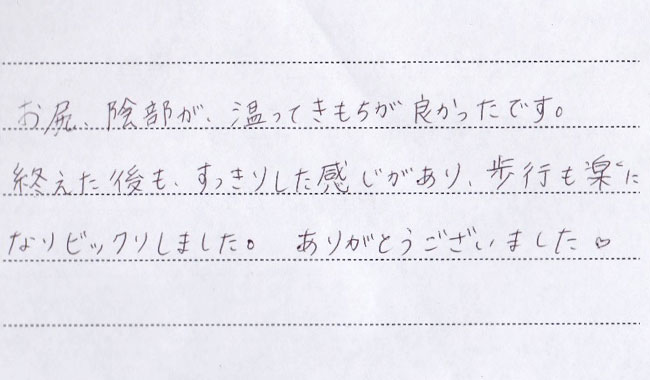 お尻、陰部が、温ってきもちが良かったです。
終えた後も、すっきりした感じがあり、歩行も楽に
なりビックリしました。 ありがとうございました♡